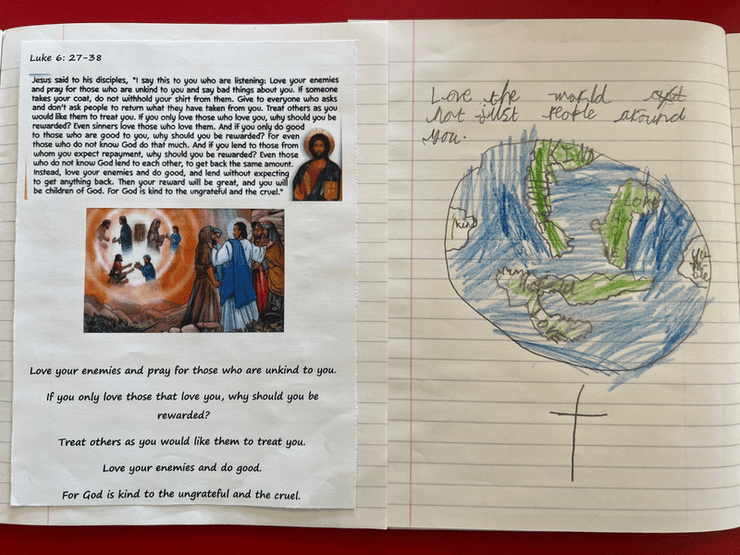 Luke 6: 27-38
Jesus said to his disciples, "I say this to you who are listening: Love your enemies
and pray for those who are unkind to you and say bad things about you. If someone
takes your coat, do not withhold your shirt from them. Give to everyone who asks
and don't ask people to return what they have taken from you. Treat others as you
would like them to treat you. If you only love those who love you, why should you be
rewarded? Even sinners love those who love them. And if you only do good
to those who are good to you, why should you be rewarded? For even
those who do not know God do that much. And if you lend to those from
whom you expect repayment, why should you be rewarded? Even those
who do not know God lend to each other, to get back the same amount.
Instead, love your enemies and do good, and lend without expecting
to get anything back. Then your reward will be great, and you will
be children of God. For God is kind to the ungrateful and the cruel."
Love your enemies and pray for those who are unkind to you.
If you only love those that love you, why should you be
rewarded?
Treat others as you would like them to treat you.
Love your enemies and do good.
For God is kind to the ungrateful and the cruel.
Love the world
not just people around
you.
kind
Love